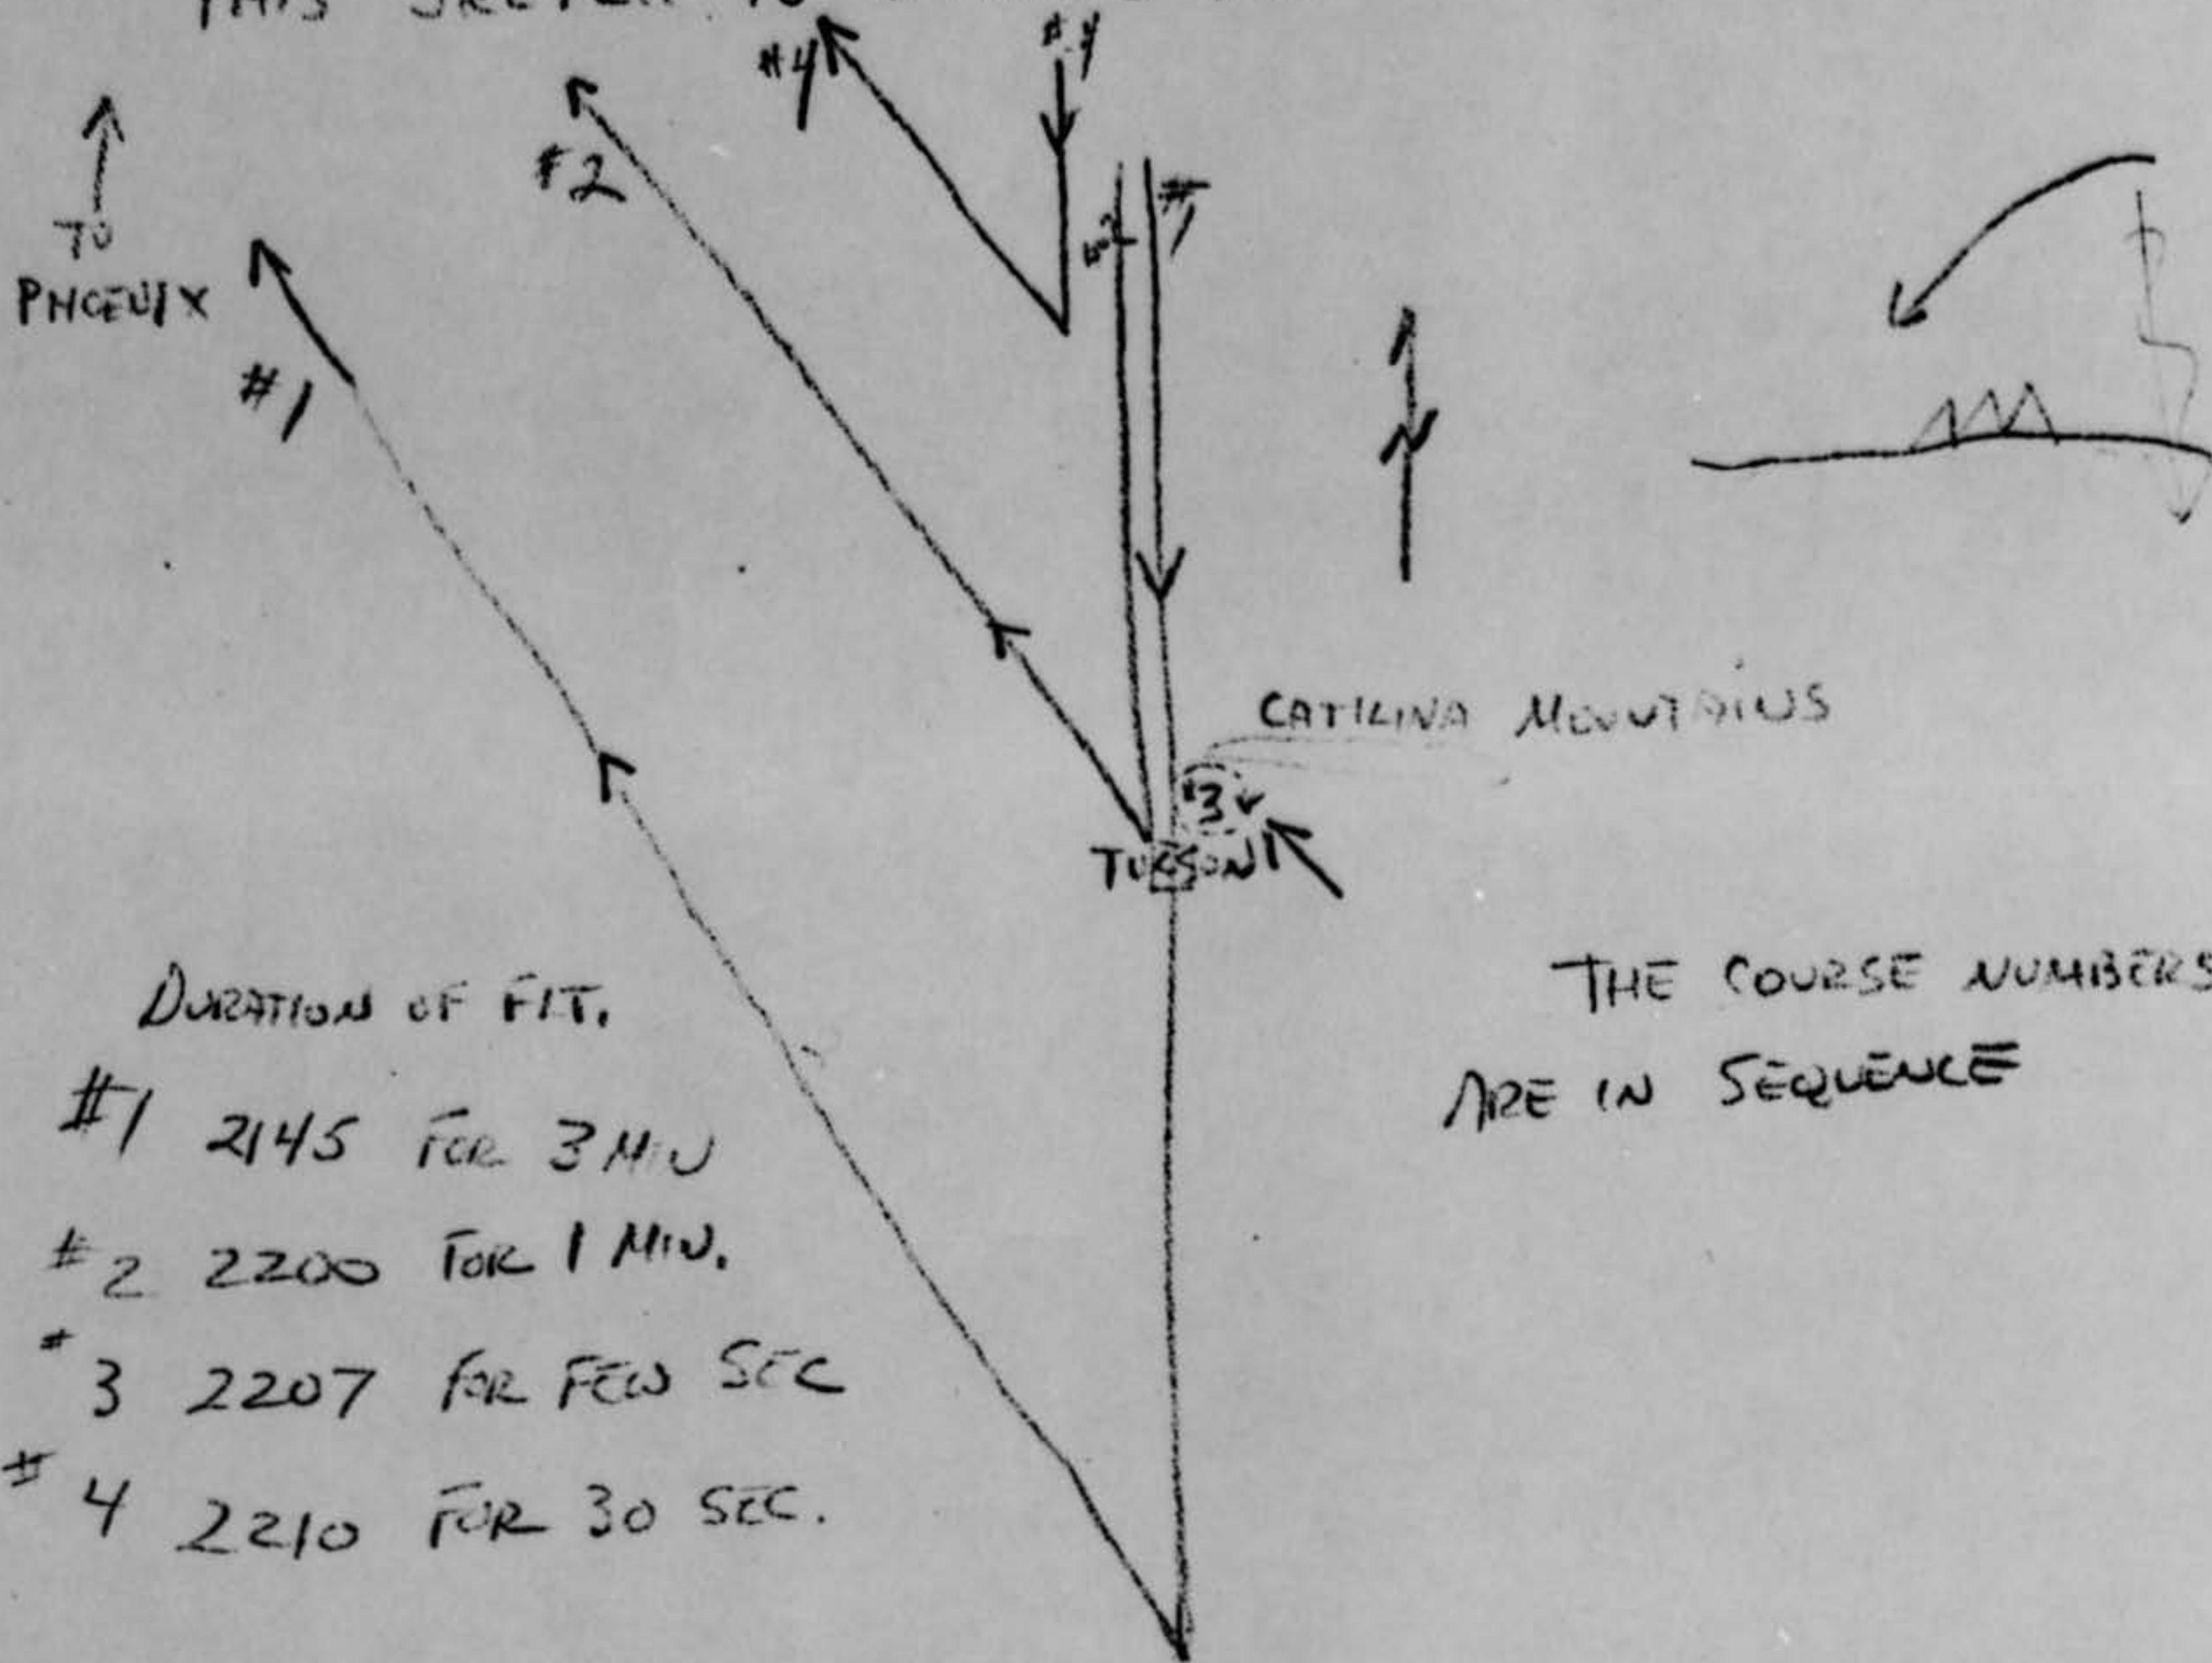 THIS SKETCH
#4
#4
#2
#1
TO
PHOENIX
#1
N
CATILINA MOUNTAINS
#3
TUCSON
DURATION OF FLT.
#1 2145 FOR 3 MIN
#2 2200 FOR 1 MIN.
#3 2207 FOR FEW SEC
#4 2210 FOR 30 SEC.
THE COURSE NUMBERS
ARE IN SEQUENCE